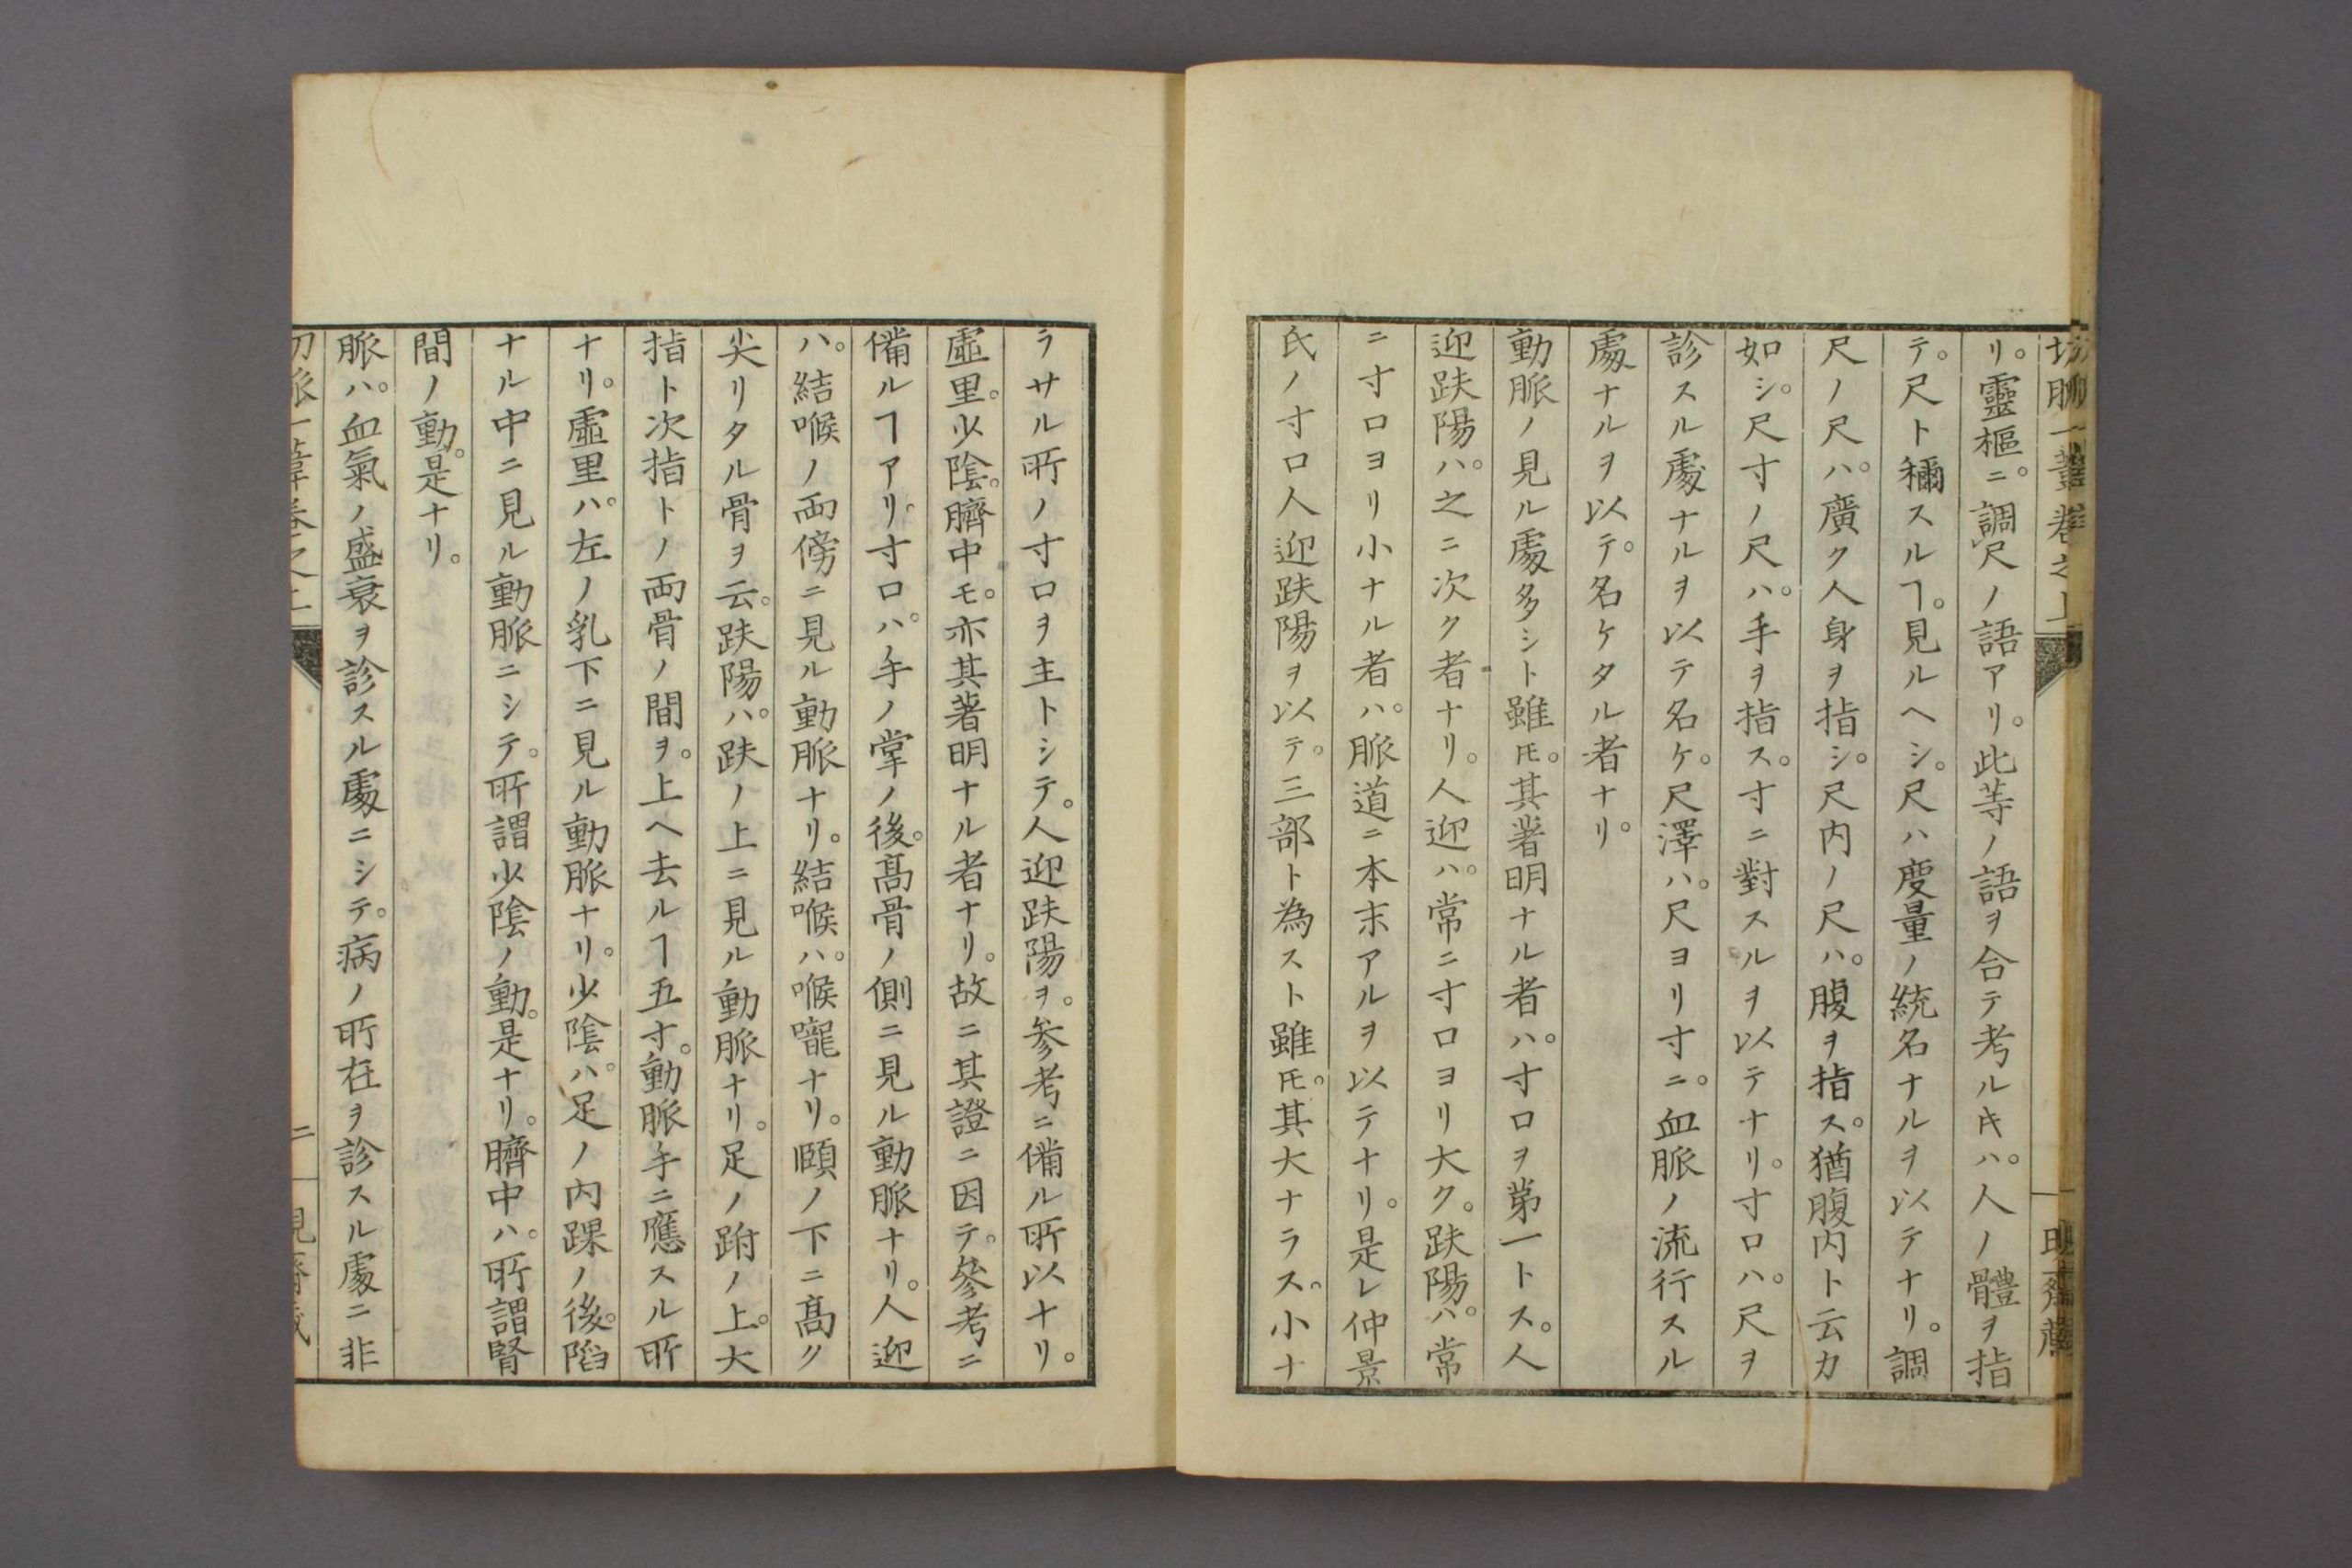 リ。靈樞ニ。調尺ノ語アリ。此等ノ語ヲ合テ考ルキハ。人ノ體ヲ指
テ。尺ト稱スルヿ。見ルヘシ。尺ハ度量ノ統名ナルヲ以テナリ。調
尺ノ尺ハ。廣ク人身ヲ指シ。尺内ノ尺ハ。腹ヲ指ス。猶腹内ト云カ
如シ。尺寸ノ尺ハ。手ヲ指ス。寸ニ對スルヲ以テナリ。寸口ハ。尺ヲ
診スル處ナルヲ以テ名ケ。尺澤ハ。尺ヨリ寸ニ。血脈ノ流行スル
處ナルヲ以テ。名ケタル者ナリ。
動脈ノ見ル處多シト雖𪜈。其著明ナル者ハ。寸口ヲ第一トス。人
迎趺陽ハ。之ニ次ク者ナリ。人迎ハ。常ニ寸口ヨリ大ク。趺陽ハ。常
ニ寸口ヨリ小ナル者ハ。脈道ニ本末アルヲ以テナリ。是レ仲景
氏ノ寸口人迎趺陽ヲ以テ。三部ト為スト雖𪜈。其大ナラス。小ナ
ラサル所ノ寸口ヲ主トシテ。人迎趺陽ヲ。参考ニ備ル所以ナリ。
虛里。少陰。臍中モ。亦其著明ナル者ナリ。故ニ其證ニ因テ。參考ニ
備ルヿアリ。寸口ハ。手ノ掌ノ後。髙骨ノ側ニ見ル動脈ナリ。人迎
ハ。結喉ノ両傍ニ見ル動脈ナリ。結喉ハ。喉嚨ナリ。頤ノ下ニ髙ク
尖リタル骨ヲ云。趺陽ハ。趺ノ上ニ見ル動脈ナリ。足ノ跗ノ上。大
指ト次指トノ両骨ノ間ヲ。上ヘ去ルヿ五寸。動脈手ニ應スル所
ナリ。虛里ハ。左ノ乳下ニ見ル動脈ナリ。少陰ハ。足ノ内踝ノ後。陷
ナル中ニ見ル動脈ニシテ。所謂少陰ノ動。是ナリ。臍中ハ。所謂腎
間ノ動。是ナリ。
脈ハ。血氣ノ盛衰ヲ診スル處ニシテ。病ノ所在ヲ診スル處ニ非